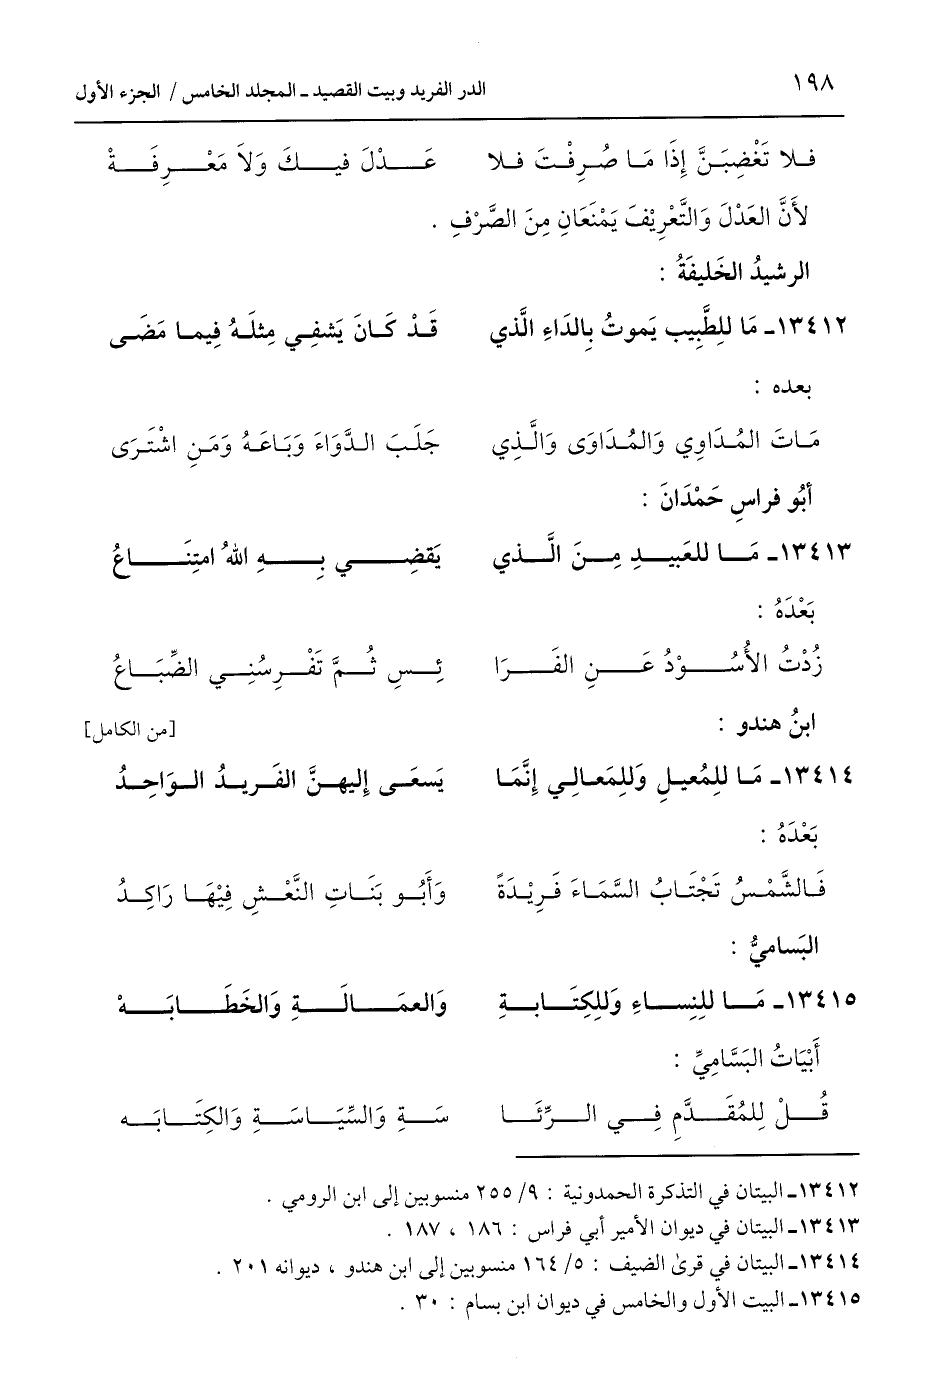 ١٩٨ الدر الفريد وبيت القصيد ـ المجلد الخامس / الجزء الأول
فلا تَغْضِبَنَّ إِذَا مَا صُرِفْتَ فلا عَدْلَ فيكَ وَلاَ مَعْرِفَةْ
لأَنَّ العَدْلَ وَالتَّعْرِيْفَ يَمْنَعَانِ مِنَ الصَّرْفِ .
الرشيدُ الخَليفَةُ :
١٣٤١٢ـ مَا للِطَّبِيب يَموتُ بِالدَاءِ الَّذي قَدْ كَانَ يَشفِي مِثلَهُ فِيما مَضَى
بعده :
مَاتَ المُدَاوِي وَالمُدَاوَى وَالَّذِي جَلَبَ الدَّوَاءَ وَبَاعَهُ وَمَنِ اشْتَرَى
أبُو فراسِ حَمْدَانَ :
١٣٤١٣ـ مَا للعَبيدِ مِنَ الَّذي يَقضِي بِهِ اللهُ امتِنَاعُ
بَعْدَهُ :
زُدْتُ الأُسُوْدُ عَنِ الفَرَا ئِسِ ثُمَّ تَفْرِسُنِي الضِّبَاعُ
ابنُ هندو : [من الكامل]
١٣٤١٤ـ مَا للِمُعيلِ وَللِمَعالي إِنَّمَا يَسعَى إِليهنَّ الفَريدُ الوَاحِدُ
بَعْدَهُ :
فَالشَّمْسُ تَجْتَابُ السَّمَاءَ فَرِيْدَةً وَأَبُو بَنَاتِ النَّعْشِ فِيْهَا رَاكِدُ
البَساميُّ :
١٣٤١٥ـ مَا للِنِساءِ وَللِكِتَابةِ وَالعمَالَةِ وَالخَطَابَهْ
أَبْيَاتُ البَسَّامِيِّ :
قُلْ لِلمُقَدَّمِ فِي الرِّئَا سَةِ وَالسِّيَاسَةِ وَالكِتَابَه
١٣٤١٢ـ البيتان في التذكرة الحمدونية : ٩/ ٢٥٥ منسوبين إلى ابن الرومي .
١٣٤١٣ـ البيتان في ديوان الأمير أبي فراس : ١٨٦ ، ١٨٧ .
١٣٤١٤ـ البيتان في قرىٰ الضيف : ٥/ ١٦٤ منسوبين إلى ابن هندو ، ديوانه ٢٠١ .
١٣٤١٥ـ البيت الأول والخامس في ديوان ابن بسام : ٣٠ .